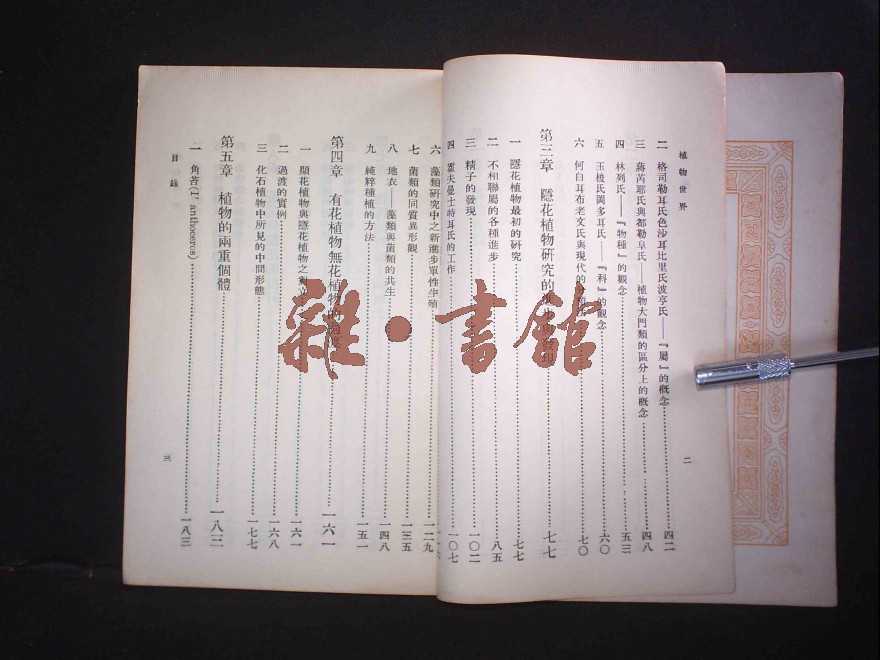 植物世界
二 格司勒耳氏色沙耳比里氏波亨氏——『屬』的概念 四二
三 蔣芮耶氏與都勒阜氏——植物大門類的區分上的概念 四八
四 林列氏——『物種』的觀念 五三
五 玉棱氏岡多耳氏——『科』的觀念 六〇
六 何白耳布老文氏與現代的 七〇
第三章 隱花植物研究的 七七
一 隱花植物最初的研究 七七
二 不相聯屬的各種進步 八五
三 精子的發現 一〇二
四 霍夫曼士特耳氏的工作 一〇七
二
六 藻類研究中之新進步單性生殖 一二九
七 菌類的同質異形觀 一三五
八 地衣——藻類與菌類的共生 一四八
九 純粹種植的方法 一五一
第四章 有花植物無花植物的 一六一
一 顯花植物與隱花植物之對立 一六一
二 過渡的實例 一六八
三 化石植物中所見的中間形態 一七七
第五章 植物的兩重個體 一八三
一 角苔(L'anthoceros) 一八三
目錄
三
雜·書館